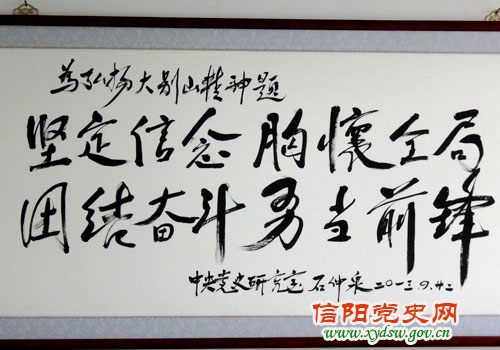 为弘扬大别山精神题
坚定信念 胸怀全局
团结奋斗 勇当前锋
中央党史研究室 石仲泉 二〇一三.9.廿二
信阳党史网
www.xydsw.gov.cn